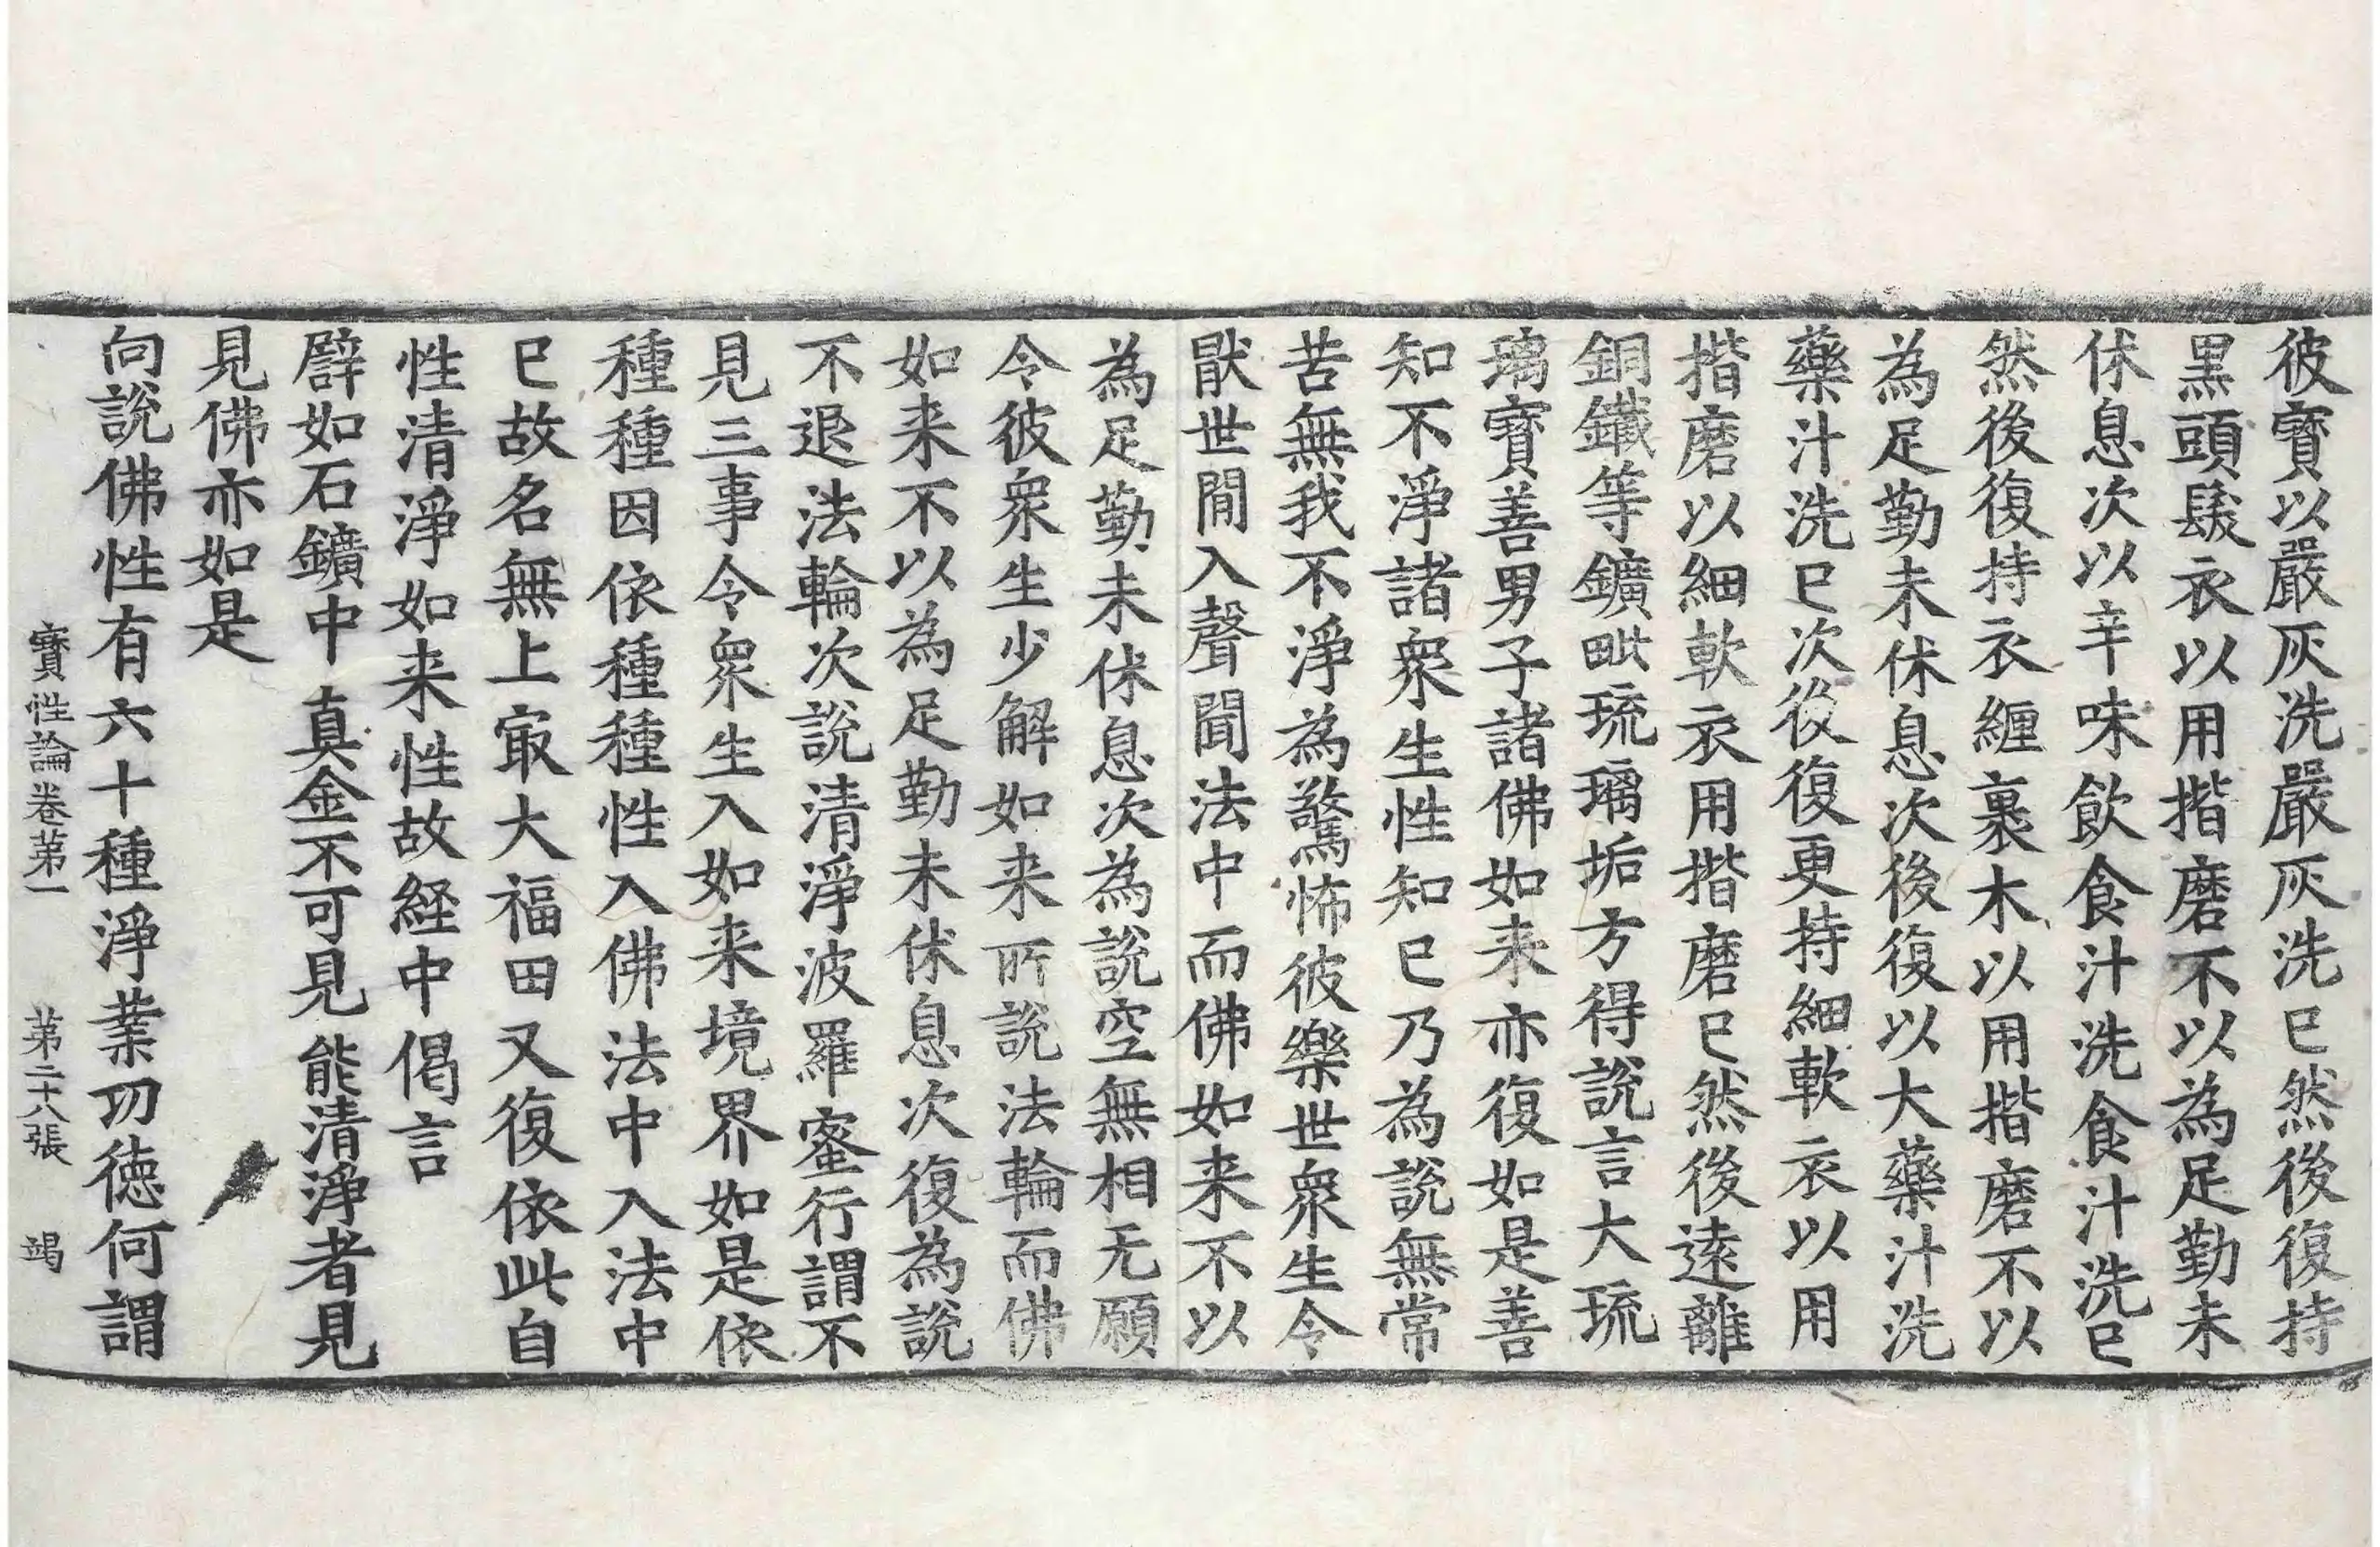 彼寳以嚴灰洗嚴灰洗已然後復持
黒頭髮衣以用揩磨不以為足勤未
休息次以辛味飲食汁洗食汁洗已
然後復持衣纏裹木以用揩磨不以
為足勤未休息次後復以大藥汁洗
藥汁洗已次後復更持細軟衣以用
揩磨以細軟衣用揩磨已然後遠離
銅鐵等鑛毗琉璃垢方得說言大琉
璃寳善男子諸佛如来亦復如是善
知不淨諸衆生性知已乃為說無常
苦無我不淨為驚怖彼樂世衆生令
猒世間入聲聞法中而佛如来不以
為足勤未休息次為說空無相无願
令彼衆生少解如来所說法輪而佛
如来不以為足勤未休息次復為說
不退法輪次說清淨波羅蜜行謂不
見三事令衆生入如来境界如是依
種種因依種種性入佛法中入法中
已故名無上㝡大福田又復依此自
性清淨如来性故経中偈言
譬如石鑛中　真金不可見　能清淨者見
見佛亦如是
向說佛性有六十種淨業功徳何謂
寳性論卷第一　第二十八張　竭